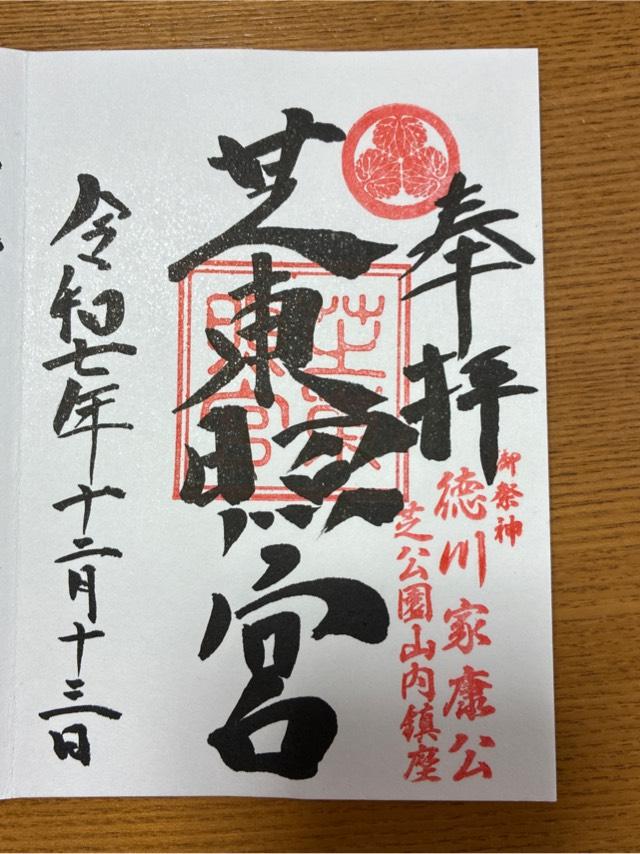 奉拝
御祭神
徳川家康公
芝公園山内鎮座
芝東照宮
芝東
照宮
令和七年十二月十三日